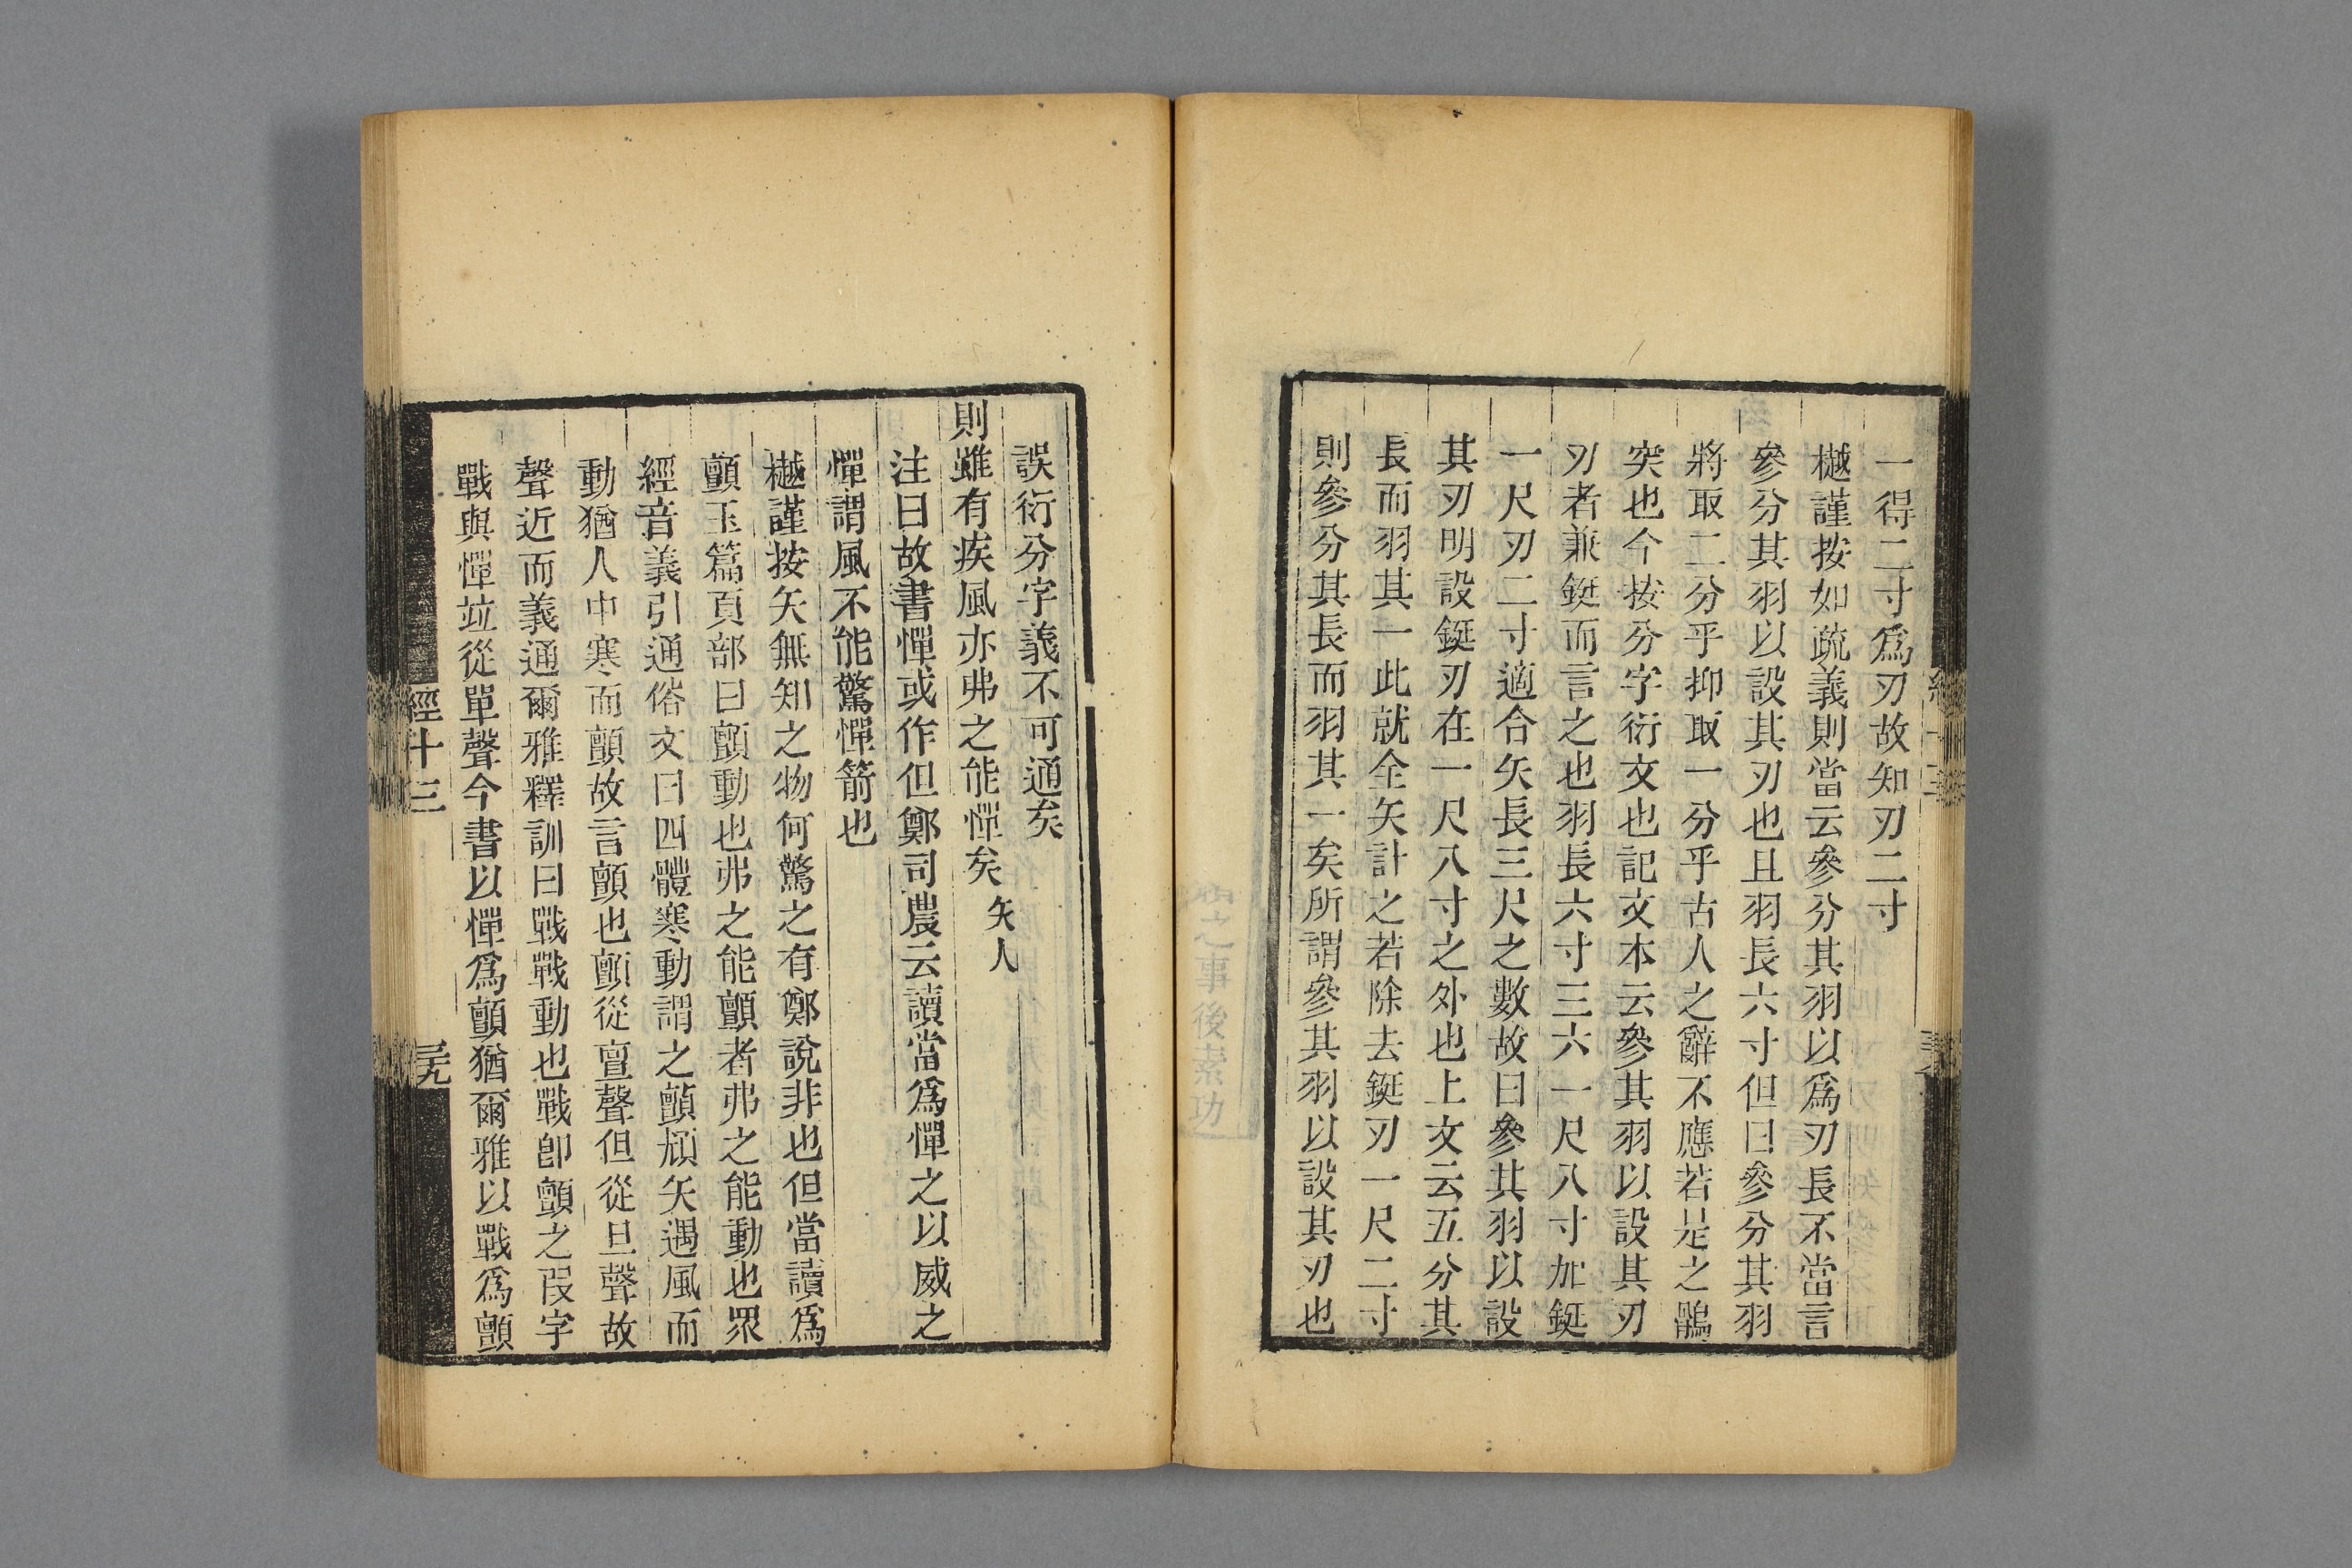 一得二寸爲刃故知刃二寸
樾謹按如疏義則當云參分其羽以爲刃長不當言
參分其羽以設其刃也且羽長六寸但曰參分其羽
將取二分乎抑取一分乎古人之辭不應若是之鶻
突也今按分字衍文也記文本云參其羽以設其刃
刃者兼鋌而言之也羽長六寸三六一尺八寸加鋌
一尺刃二寸適合矢長三尺之數故曰參其羽以設
其刃明設鋌刃在一尺八寸之外也上文云五分其
長而羽其一此就全矢計之若除去鋌刃一尺二寸
則參分其長而羽其一矣所謂參其羽以設其刃也
誤衍分字義不可通矣
則雖有疾風亦弗之能憚矣 矢人
注曰故書憚或作但鄭司農云讀當爲憚之以威之
憚謂風不能驚憚箭也
樾謹按矢無知之物何驚之有鄭說非也但當讀爲
顫玉篇頁部曰顫動也弗之能顫者弗之能動也眾
經音義引通俗文曰四體寒動謂之顫頄矢遇風而
動猶人中寒而顫故言顫也顫從亶聲但從旦聲故
聲近而義通爾雅釋訓曰戰戰動也戰卽顫之叚字
戰與憚竝從單聲今書以憚爲顫猶爾雅以戰爲顫
經十三
三九